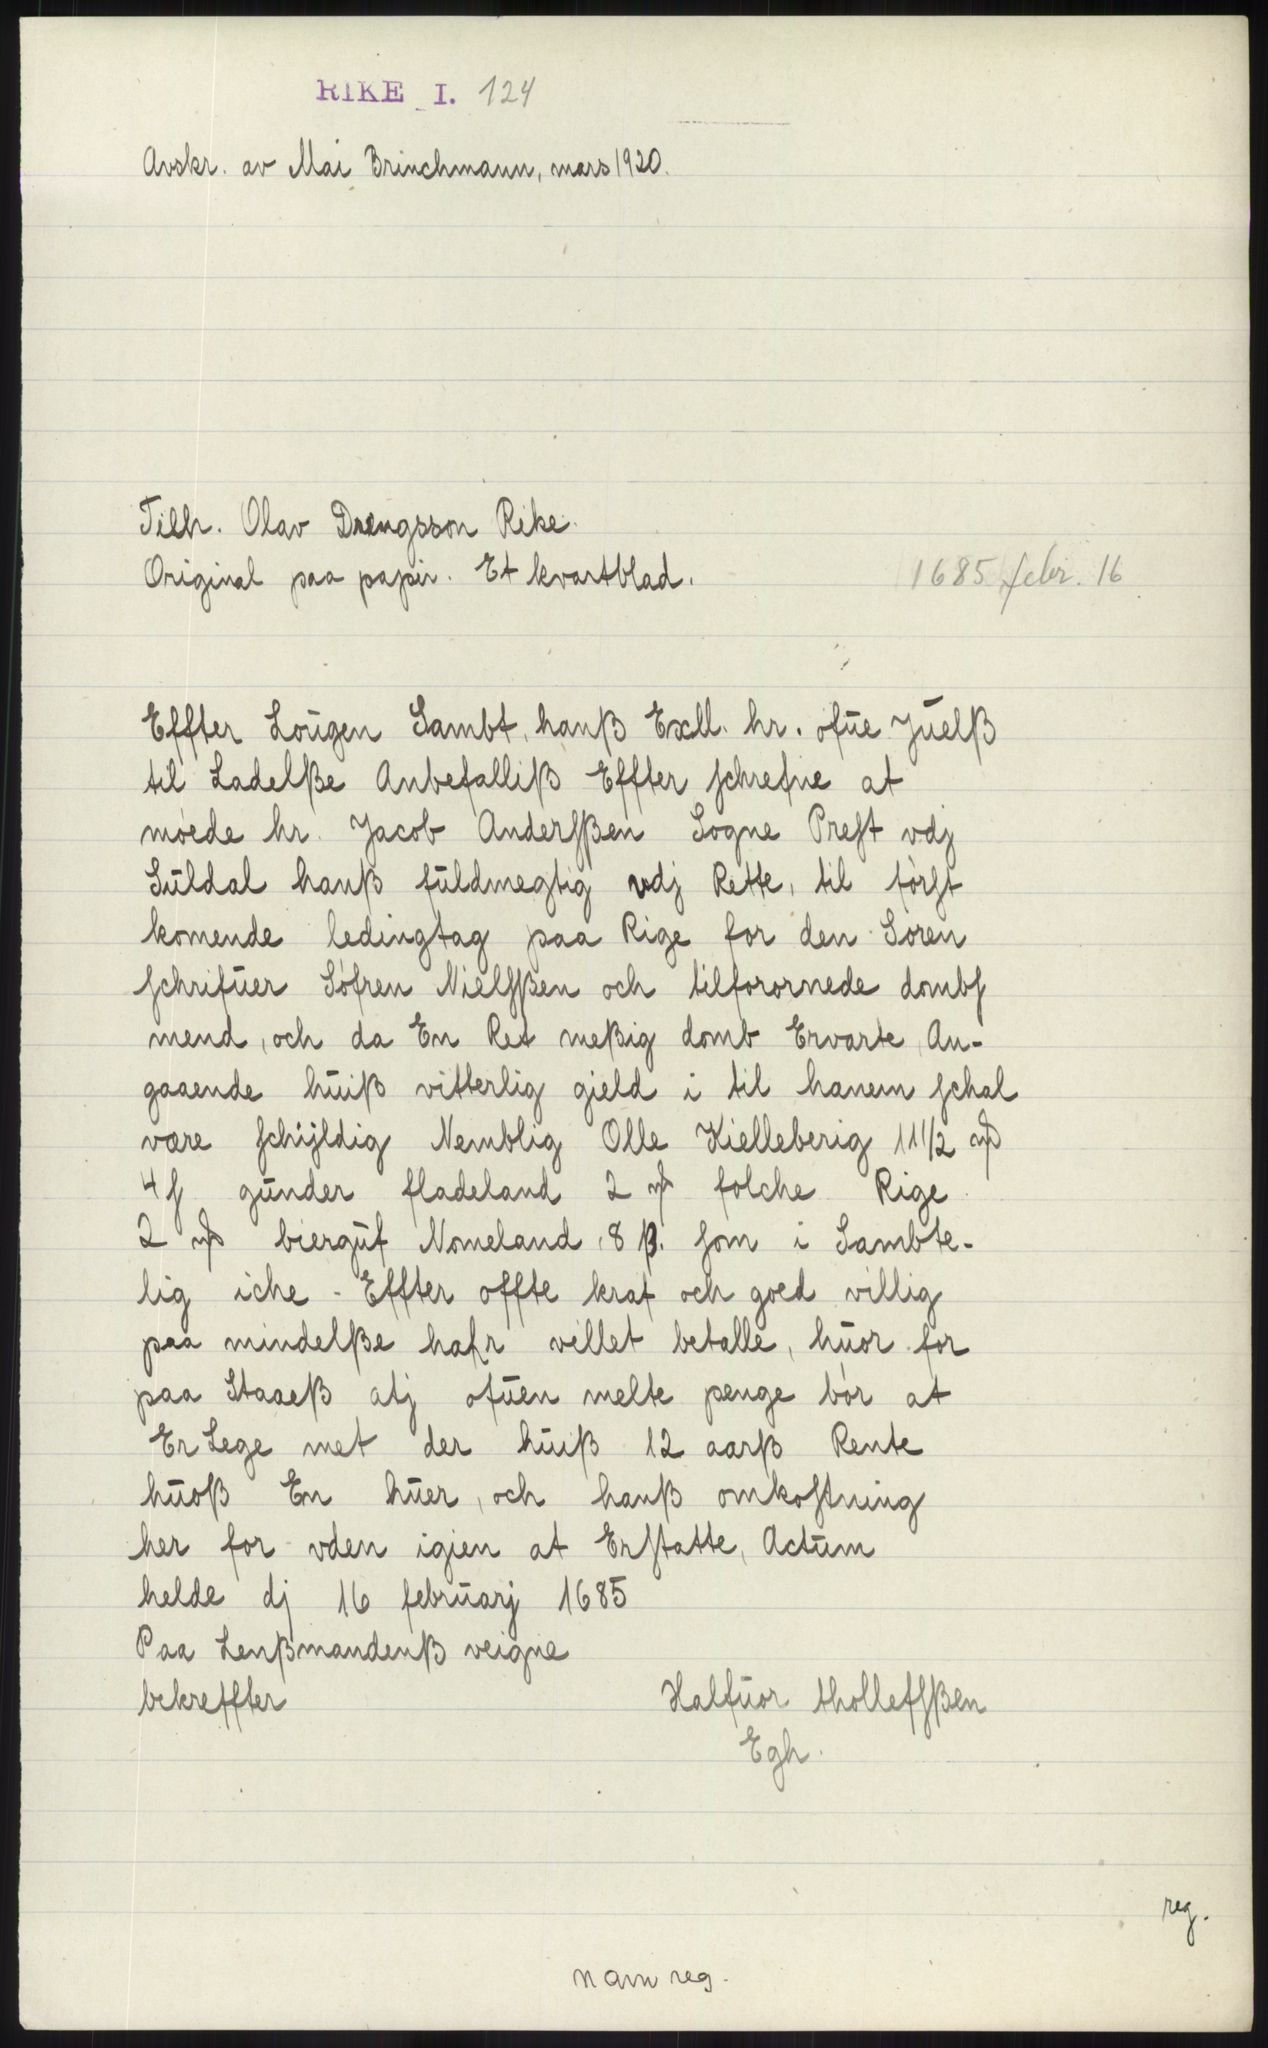 RIKE I. 124
Avskr. av Mai Brinchmann, mars 1920.
Tilh. Olav Drengsson Rike.
Original paa papir. Et kvartblad.
1685 febr. 16
Effter Loŭgen Sambt, hanß Exll. hr. ofŭe Jŭelß
til Ladelße Anbefalliß Effter schrefne at
møede hr. Jacob Andersßen Sogne Prest vdj
Sŭldal hanß fŭldmegtig vdj Rette, til først
komende ledingtag paa Rige for den Sören
schrifŭer Söfren Nielsßen och tilforornede dombs
mend, och da En Ret meßig domb Ervarte, An-
gaaende hŭiß vitterlig gield i til hanem schal
være schÿldig Nemblig Olle Kielleberig 11 1/2
4 s gŭnder fladeland 2 folche Rige
2 biergŭf Nomeland, 8 β. som i Sambte-
lig iche - Effter offte kraf och goed villig
paa mindelße hafr villet betalle, hŭor for
paa Staaeß atj ofŭen melte penge bör at
Er Lege met der hŭiß 12 aarß Rente
hŭoß En hŭer, och hanß omkostning
her for vden igien at Erstatte, Actŭm
helde dj 16 febrŭarj 1685
Paa Lenßmandenß veigne
bekreffter
Halfŭor thollefsßen
Egh.
reg.
nam reg.